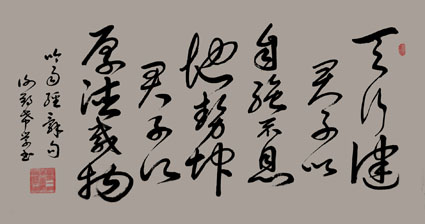 天行健
君子以
自強不息
地勢坤
君子以
厚德載物
易經 句